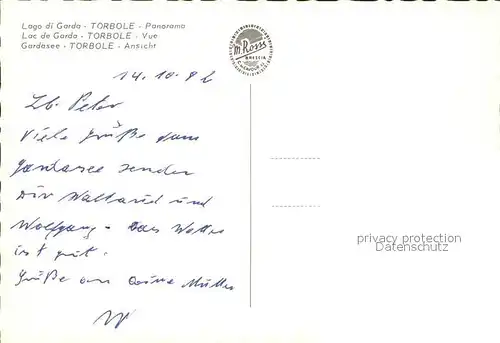 Lago di Garda - TORBOLE - Panorama
Lac de Garda - TORBOLE - Vue
Gardasee - TORBOLE - Ansicht
m. Ross
BRESCIA
14. 10. 86
Lb. Peter
Viele Grüße vom
Gardasee senden
Dir Waltraud und
Wolfgang - Das Wetter
ist gut.
Grüße an Deine Mutter
W
privacy protection
Datenschutz